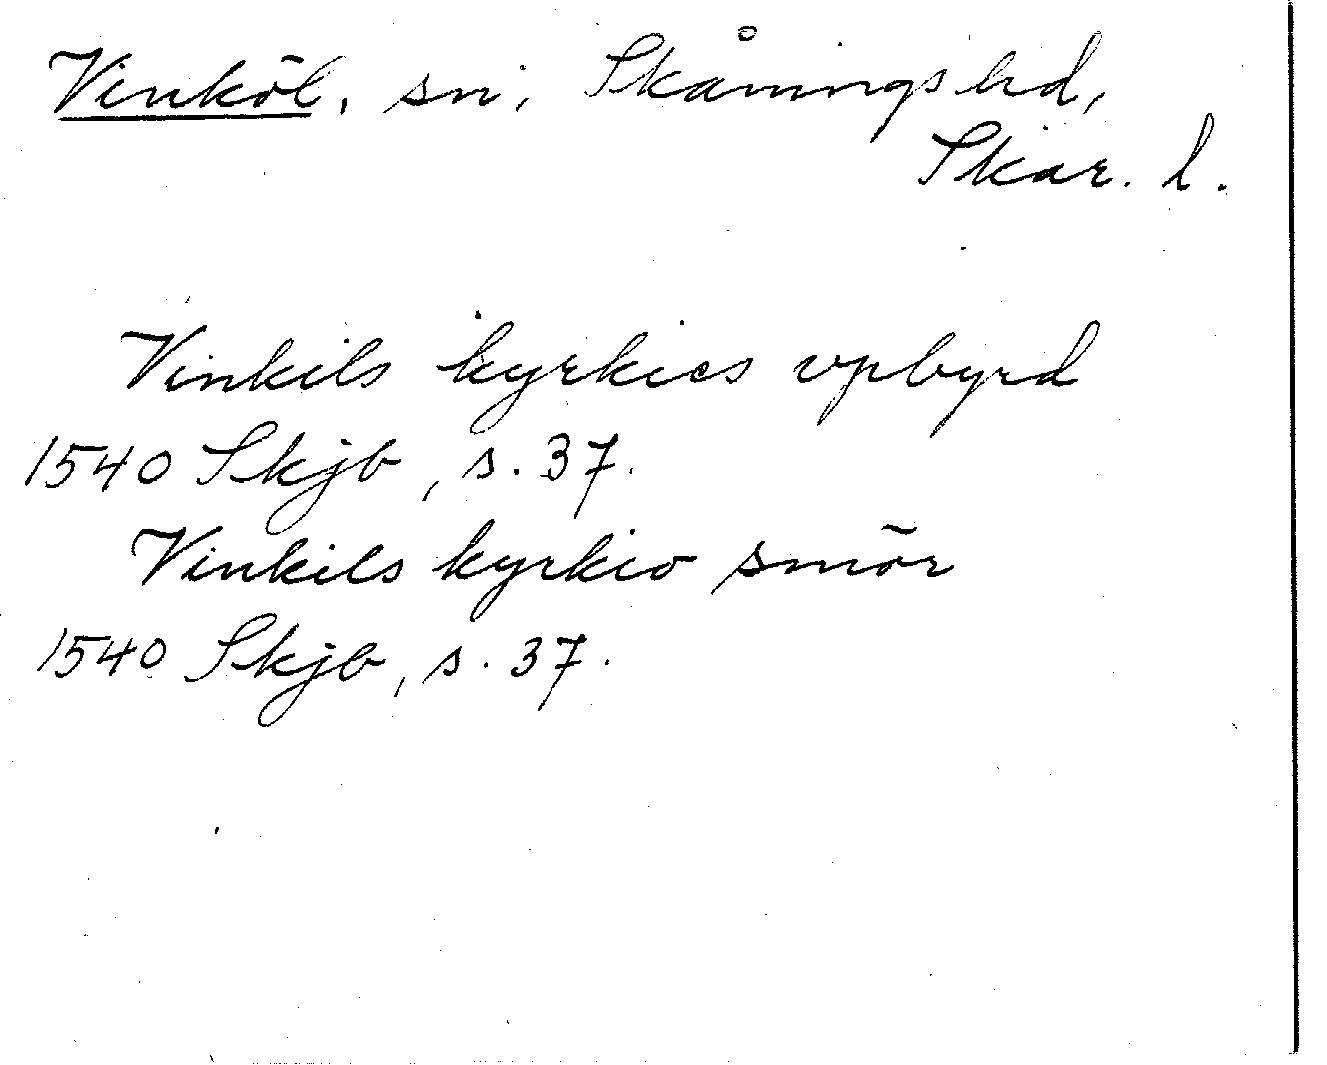 Vinköl, sn, Skånings hd,
Skar. l.
Vinkils kyrkies vpbyrd
1540 Skjb, s. 37.
Vinkils kyrkio smör
1540 Skjb, s. 37.